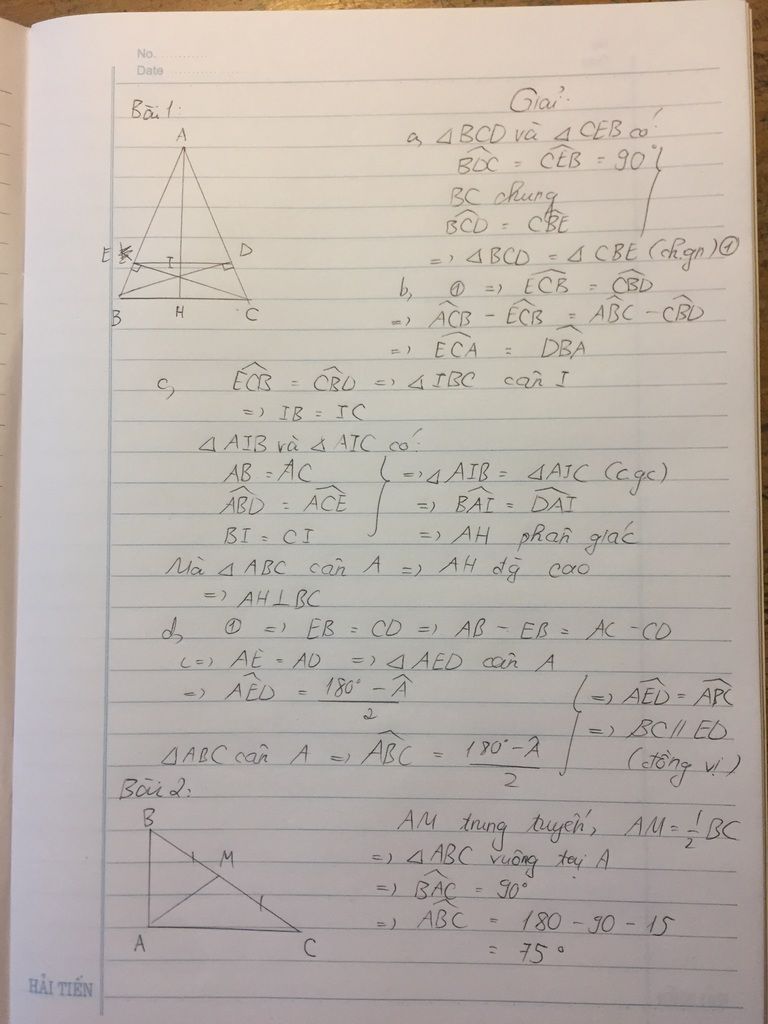 No.
Date
Bài 1:
Giải:
A
E
D
I
B
H
C
a, △BCD và △CEB có:
BDC^ = CEB^ = 90°
BC chung
BCD^ = CBE^
=> △BCD = △CBE (ch.gn) ①
b, ① => ECB^ = CBD^
=> ACB^ - ECB^ = ABC^ - CBD^
=> ECA^ = DBA^
c, ECB^ = CBD^ => △IBC cân I
=> IB = IC
△AIB và △AIC có:
AB = AC
ABD^ = ACE^
BI = CI
=> △AIB = △AIC (c.gc)
=> BAI^ = DAI^
=> AH phân giác
Mà △ABC cân A => AH đg cao
=> AH⊥BC
d, ① => EB = CD => AB - EB = AC - CD
<=> AE = AD => △AED cân A
=> AED^ = (180° - A^)/2
△ABC cân A => ABC^ = (180° - A^)/2
=> AED^ = ABC^
=> BC // ED
(đồng vị)
Bài 2:
B
M
A
C
AM trung tuyến, AM = 1/2 BC
=> △ABC vuông tại A
=> BAC^ = 90°
=> ABC^ = 180 - 90 - 15
= 75°
HẢI TIẾN